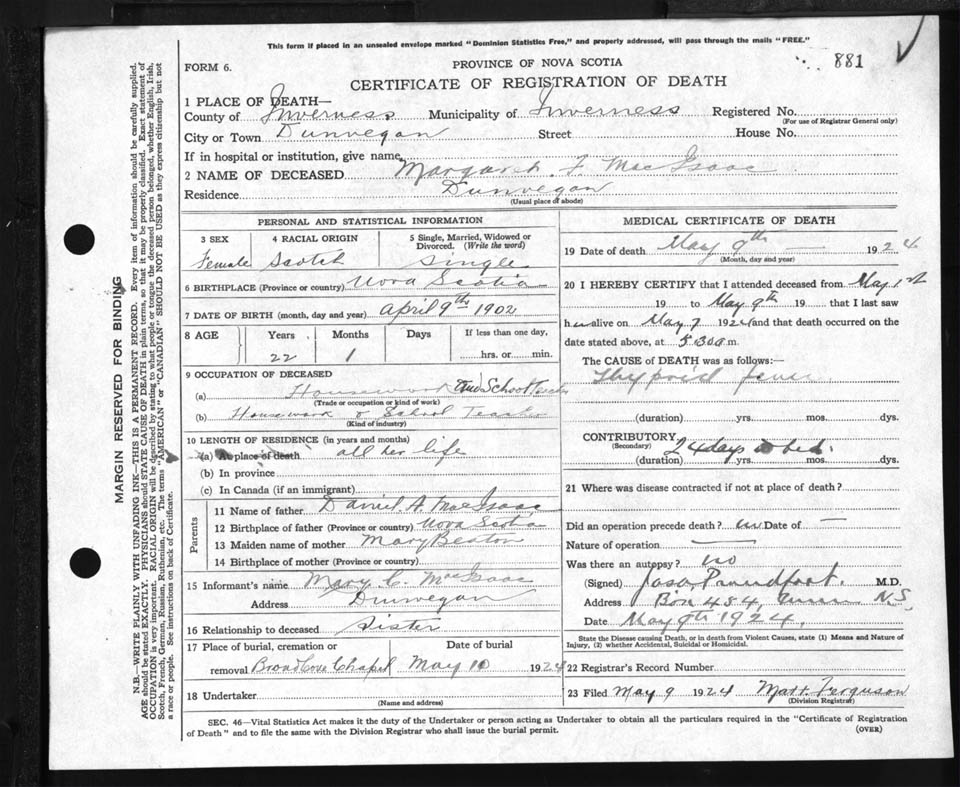 This form if placed in an unsealed envelope marked "Dominion Statistics Free," and properly addressed, will pass through the mails "FREE."
881
FORM 6.
PROVINCE OF NOVA SCOTIA
CERTIFICATE OF REGISTRATION OF DEATH
1 PLACE OF DEATH—
County of Inverness Municipality of Inverness Registered No.
(For use of Registrar General only)
City or Town Dunvegan Street House No.
If in hospital or institution, give name
2 NAME OF DECEASED Margaret F MacIsaac
Residence Dunvegan
(Usual place of abode)
PERSONAL AND STATISTICAL INFORMATION
3 SEX 4 RACIAL ORIGIN 5 Single, Married, Widowed or Divorced. (Write the word)
Female Scotch Single
6 BIRTHPLACE (Province or country) Nova Scotia
7 DATE OF BIRTH (month, day and year) April 9th 1902
8 AGE Years Months Days If less than one day,
22 1 hrs. or min.
9 OCCUPATION OF DECEASED
(a) Housework and School Teacher
(Trade or occupation or kind of work)
(b) Housework & School Teacher
(Kind of industry)
10 LENGTH OF RESIDENCE (in years and months)
(a) At place of death all her life
(b) In province
(c) In Canada (if an immigrant)
Parents
11 Name of father Daniel A. MacIsaac
12 Birthplace of father (Province or country) Nova Scotia
13 Maiden name of mother Mary Beaton
14 Birthplace of mother (Province or country)
15 Informant's name Mary C. MacIsaac
Address Dunvegan
16 Relationship to deceased Sister
17 Place of burial, cremation or Date of burial
removal Broad Cove Chapel May 10 1924
18 Undertaker
(Name and address)
MEDICAL CERTIFICATE OF DEATH
19 Date of death May 9th — 1924
(Month, day and year)
20 I HEREBY CERTIFY that I attended deceased from May 1st
19 to May 9th 19 that I last saw
h er alive on May 7 1924 and that death occurred on
date stated above, at 5.30 a m.
The CAUSE OF DEATH was as follows:
Thyproid fever
(duration) yrs. mos. dys.
CONTRIBUTORY
(Secondary) 24 days in bed.
(duration) yrs. mos. dys.
21 Where was disease contracted if not at place of death?
Did an operation precede death? no Date of —
Nature of operation —
Was there an autopsy? no
(Signed) Proudfoot. M.D.
Address Box 484, N.S.
Date May 9th 1924.
State the Disease causing Death, or in death from Violent Causes, state (1) Means and Nature of Injury, (2) whether Accidental, Suicidal or Homicidal.
22 Registrar's Record Number
23 Filed May 9 1924 Matt. Ferguson
(Division Registrar)
SEC. 46—Vital Statistics Act makes it the duty of the Undertaker or person acting as Undertaker to obtain all the particulars required in the "Certificate of Registration
of Death" and to file the same with the Division Registrar who shall issue the burial permit.
(OVER)
MARGIN RESERVED FOR BINDING
N.B.—WRITE PLAINLY WITH UNFADING INK—THIS IS A PERMANENT RECORD. Every item of information should be carefully supplied.
AGE should be stated EXACTLY. PHYSICIANS should STATE CAUSE OF DEATH in plain terms, so that it may be properly classified. Exact statement of
OCCUPATION is very important. RACIAL ORIGIN will be described by stating to what people or tongue the deceased person belonged, whether English, Irish,
Scotch, French, German, Russian, Ruthenian, etc. The terms "AMERICAN" or "CANADIAN" SHOULD NOT BE USED as they express citizenship but not
a race or people. See instructions on back of Certificate.